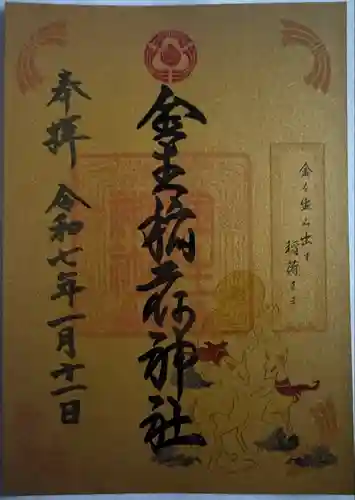 金を生み出す
稲荷さま
金生稲荷神社
奉拝
令和七年一月十一日